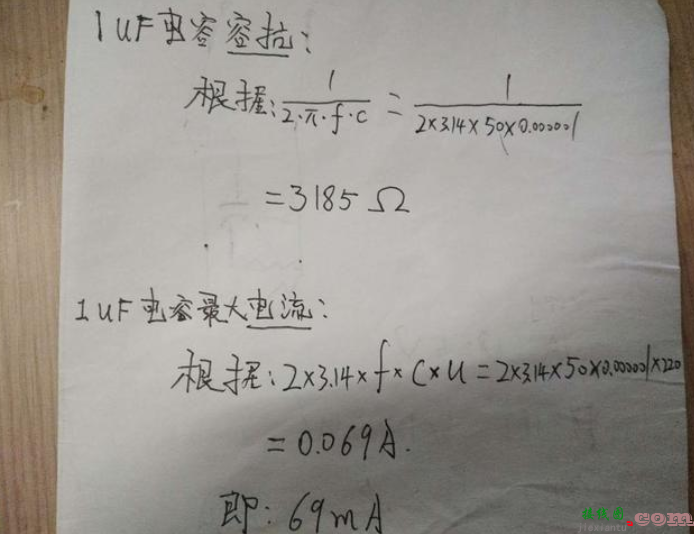 1uF电容容抗:
根据: 1/2·π·f·c = 1/2×3.14×50×0.000001
=3185Ω
1uF电容最大电流:
根据: 2×3.14×f×C×U=2×3.14×50×0.000001×220
=0.069A.
即: 69mA
接线图
jiexiantu